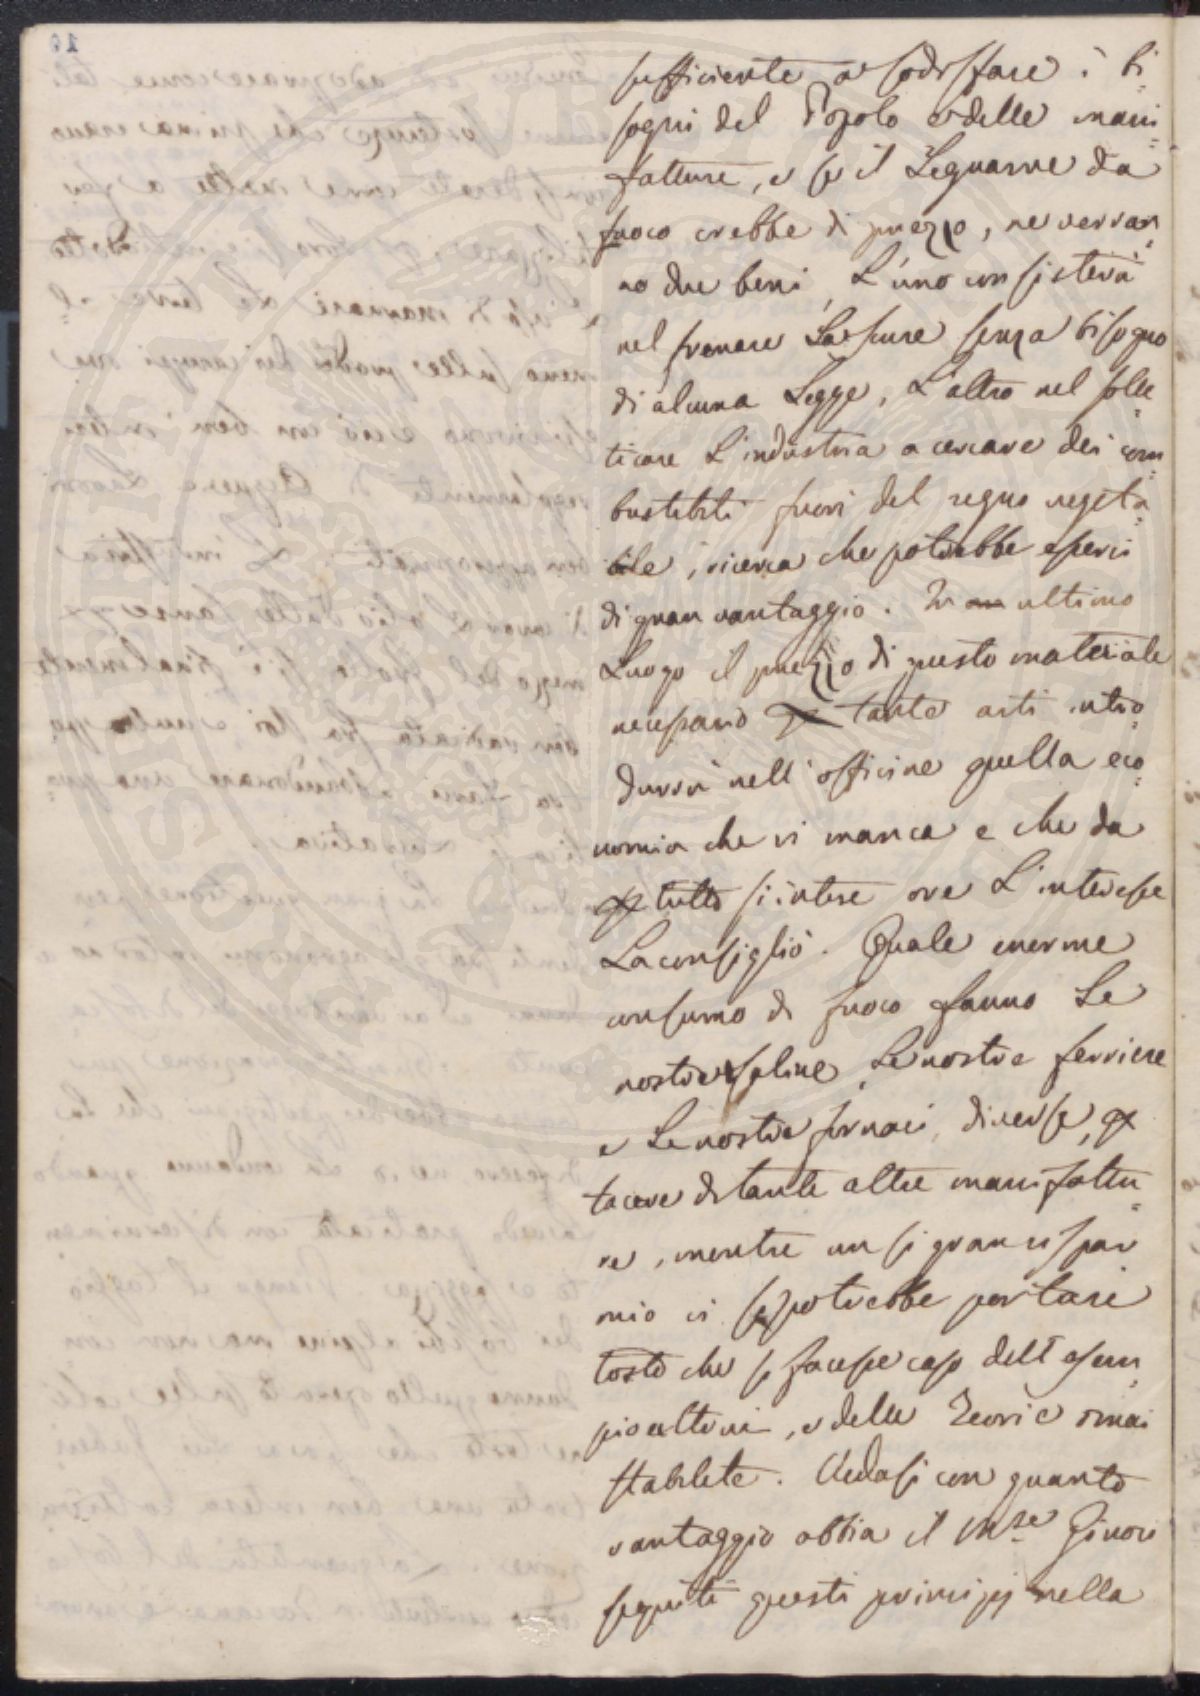 sufficiente a sodisfare i bi
sogni del Popolo e delle mani=
fatture, e se il Legname da
fuoco crebbe di prezzo, ne verran=
no due beni, L'uno consisterà
nel frenare La scure senza bisogno
di alcuna Legge, L'altro nel solle=
ticare L'industria a cercare dei com=
bustibili fuori del regno vegeta=
bile, ricerca che potrebbe esserci
di gran vantaggio. In ultimo
Luogo il prezzo di questo materiale
necessario tante arti intro=
durrà nell'officine quella eco=
nomia che vi manca e che da
tutto si intese ove L'interesse
La consigliò. Quale enorme
consumo di fuoco fanno Le
nostre saline, Le nostre ferriere
e Le nostre fornaci diverse,
tacere di tante altre manifattu=
re, mentre un si gran rispar
mio vi si potrebbe portare
tosto che si facesse caso dell'esem=
pio altrui, e delle Teorie omai
stabilite. Vedasi con quanto
vantaggio abbia il M.se Ginori
seguiti questi principj nella